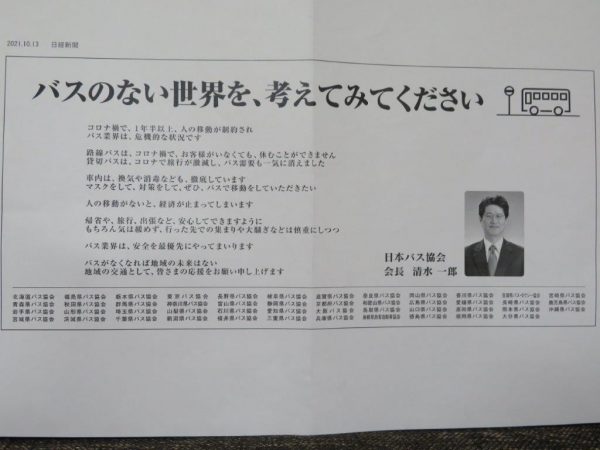 2021.10.13 日経新聞
バスのない世界を、考えてみてください
コロナ禍で、1年半以上、人の移動が制約され
バス業界は、危機的な状況です
路線バスは、コロナ禍で、お客様がいなくても、休むことができません
貸切バスは、コロナで旅行が激減し、バス需要も一気に消えました
車内は、換気や消毒なども、徹底しています
マスクをして、対策をして、ぜひ、バスで移動をしていただきたい
人の移動がないと、経済が止まってしまいます
帰省や、旅行、出張など、安心してできますように
もちろん気は緩めず、行った先での集まりや大騒ぎなどは慎重にしつつ
バス業界は、安全を最優先にやってまいります
バスがなくなれば地域の未来はない
地域の交通として、皆さまの応援をお願い申し上げます
日本バス協会
会長 清水 一郎
北海道バス協会 福島県バス協会 栃木県バス協会 東京バス協会 長野県バス協会 岐阜県バス協会 滋賀県バス協会 奈良県バス協会 岡山県バス協会 香川県バス協会 宮崎県バス協会
青森県バス協会 秋田県バス協会 群馬県バス協会 神奈川県バス協会 富山県バス協会 静岡県バス協会 京都府バス協会 和歌山県バス協会 広島県バス協会 愛媛県バス協会 長崎県バス協会 鹿児島県バス協会
岩手県バス協会 山形県バス協会 埼玉県バス協会 山梨県バス協会 石川県バス協会 愛知県バス協会 大阪バス協会 鳥取県バス協会 山口県バス協会 高知県バス協会 熊本県バス協会 沖縄県バス協会
宮城県バス協会 茨城県バス協会 千葉県バス協会 新潟県バス協会 福井県バス協会 三重県バス協会 兵庫県バス協会 徳島県バス協会 福岡県バス協会 大分県バス協会